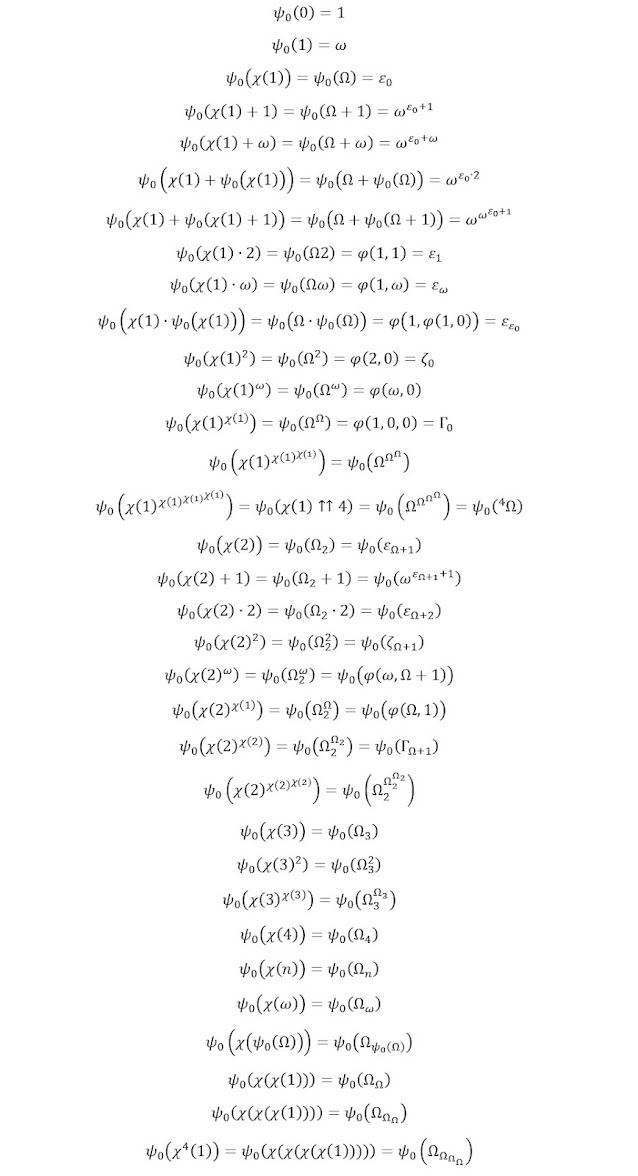 ψ₀(0) = 1
ψ₀(1) = ω
ψ₀(χ(1)) = ψ₀(Ω) = ε₀
ψ₀(χ(1) + 1) = ψ₀(Ω + 1) = ω^{ε₀+1}
ψ₀(χ(1) + ω) = ψ₀(Ω + ω) = ω^{ε₀+ω}
ψ₀(χ(1) + ψ₀(χ(1))) = ψ₀(Ω + ψ₀(Ω)) = ω^{ε₀·2}
ψ₀(χ(1) + ψ₀(χ(1) + 1)) = ψ₀(Ω + ψ₀(Ω + 1)) = ω^{ω^{ε₀+1}}
ψ₀(χ(1) · 2) = ψ₀(Ω2) = φ(1, 1) = ε₁
ψ₀(χ(1) · ω) = ψ₀(Ωω) = φ(1, ω) = ε_ω
ψ₀(χ(1) · ψ₀(χ(1))) = ψ₀(Ω · ψ₀(Ω)) = φ(1, φ(1, 0)) = ε_{ε₀}
ψ₀(χ(1)²) = ψ₀(Ω²) = φ(2, 0) = ζ₀
ψ₀(χ(1)^ω) = ψ₀(Ω^ω) = φ(ω, 0)
ψ₀(χ(1)^{χ(1)}) = ψ₀(Ω^Ω) = φ(1, 0, 0) = Γ₀
ψ₀(χ(1)^{χ(1)^{χ(1)}}) = ψ₀(Ω^{Ω^Ω})
ψ₀(χ(1)^{χ(1)^{χ(1)^{χ(1)}}}) = ψ₀(χ(1) ↑↑ 4) = ψ₀(Ω^{Ω^{Ω^Ω}}) = ψ₀(⁴Ω)
ψ₀(χ(2)) = ψ₀(Ω₂) = ψ₀(ε_{Ω+1})
ψ₀(χ(2) + 1) = ψ₀(Ω₂ + 1) = ψ₀(ω^{ε_{Ω+1}+1})
ψ₀(χ(2) · 2) = ψ₀(Ω₂ · 2) = ψ₀(ε_{Ω+2})
ψ₀(χ(2)²) = ψ₀(Ω₂²) = ψ₀(ζ_{Ω+1})
ψ₀(χ(2)^ω) = ψ₀(Ω₂^ω) = ψ₀(φ(ω, Ω + 1))
ψ₀(χ(2)^{χ(1)}) = ψ₀(Ω₂^Ω) = ψ₀(φ(Ω, 1))
ψ₀(χ(2)^{χ(2)}) = ψ₀(Ω₂^{Ω₂}) = ψ₀(Γ_{Ω+1})
ψ₀(χ(2)^{χ(2)^{χ(2)}}) = ψ₀(Ω₂^{Ω₂^{Ω₂}})
ψ₀(χ(3)) = ψ₀(Ω₃)
ψ₀(χ(3)²) = ψ₀(Ω₃²)
ψ₀(χ(3)^{χ(3)}) = ψ₀(Ω₃^{Ω₃})
ψ₀(χ(4)) = ψ₀(Ω₄)
ψ₀(χ(n)) = ψ₀(Ω_n)
ψ₀(χ(ω)) = ψ₀(Ω_ω)
ψ₀(χ(ψ₀(Ω))) = ψ₀(Ω_{ψ₀(Ω)})
ψ₀(χ(χ(1))) = ψ₀(Ω_Ω)
ψ₀(χ(χ(χ(1)))) = ψ₀(Ω_{Ω_Ω})
ψ₀(χ⁴(1)) = ψ₀(χ(χ(χ(χ(1))))) = ψ₀(Ω_{Ω_{Ω_Ω}})